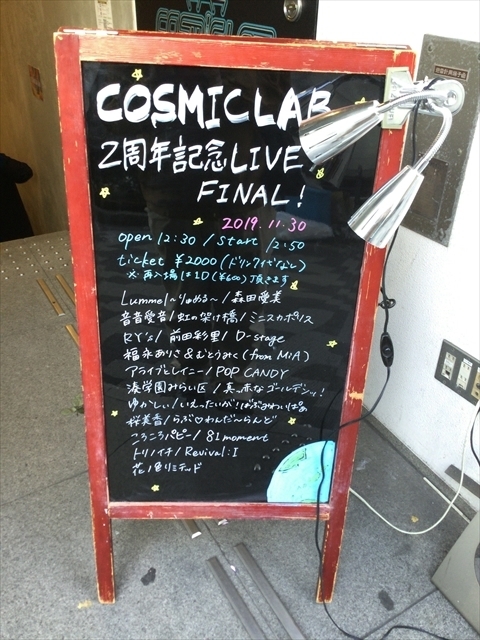 COSMICLAB
2周年記念LIVE
FINAL!
2019.11.30
open 12:30 / start 12:50
ticket ¥2000(ドリンク代なし)
※再入場は1D(¥600)頂きます
Lummel〜りゅめる〜/森田愛美
音音愛音/虹の架け橋/ミニスカポリス
RY's/前田彩里/D-stage
福永ありさ&むとうMC(from MiA)
アライブとレイニー/POP CANDY
湊学園みらい区/真っ赤なゴールデンッ!
ゆかしい/いえったいが
桜美香/らぶ♡わんだーらんど
ころころパピー/81moment
トリノイチ/Revival:I
花ノ色リミテッド